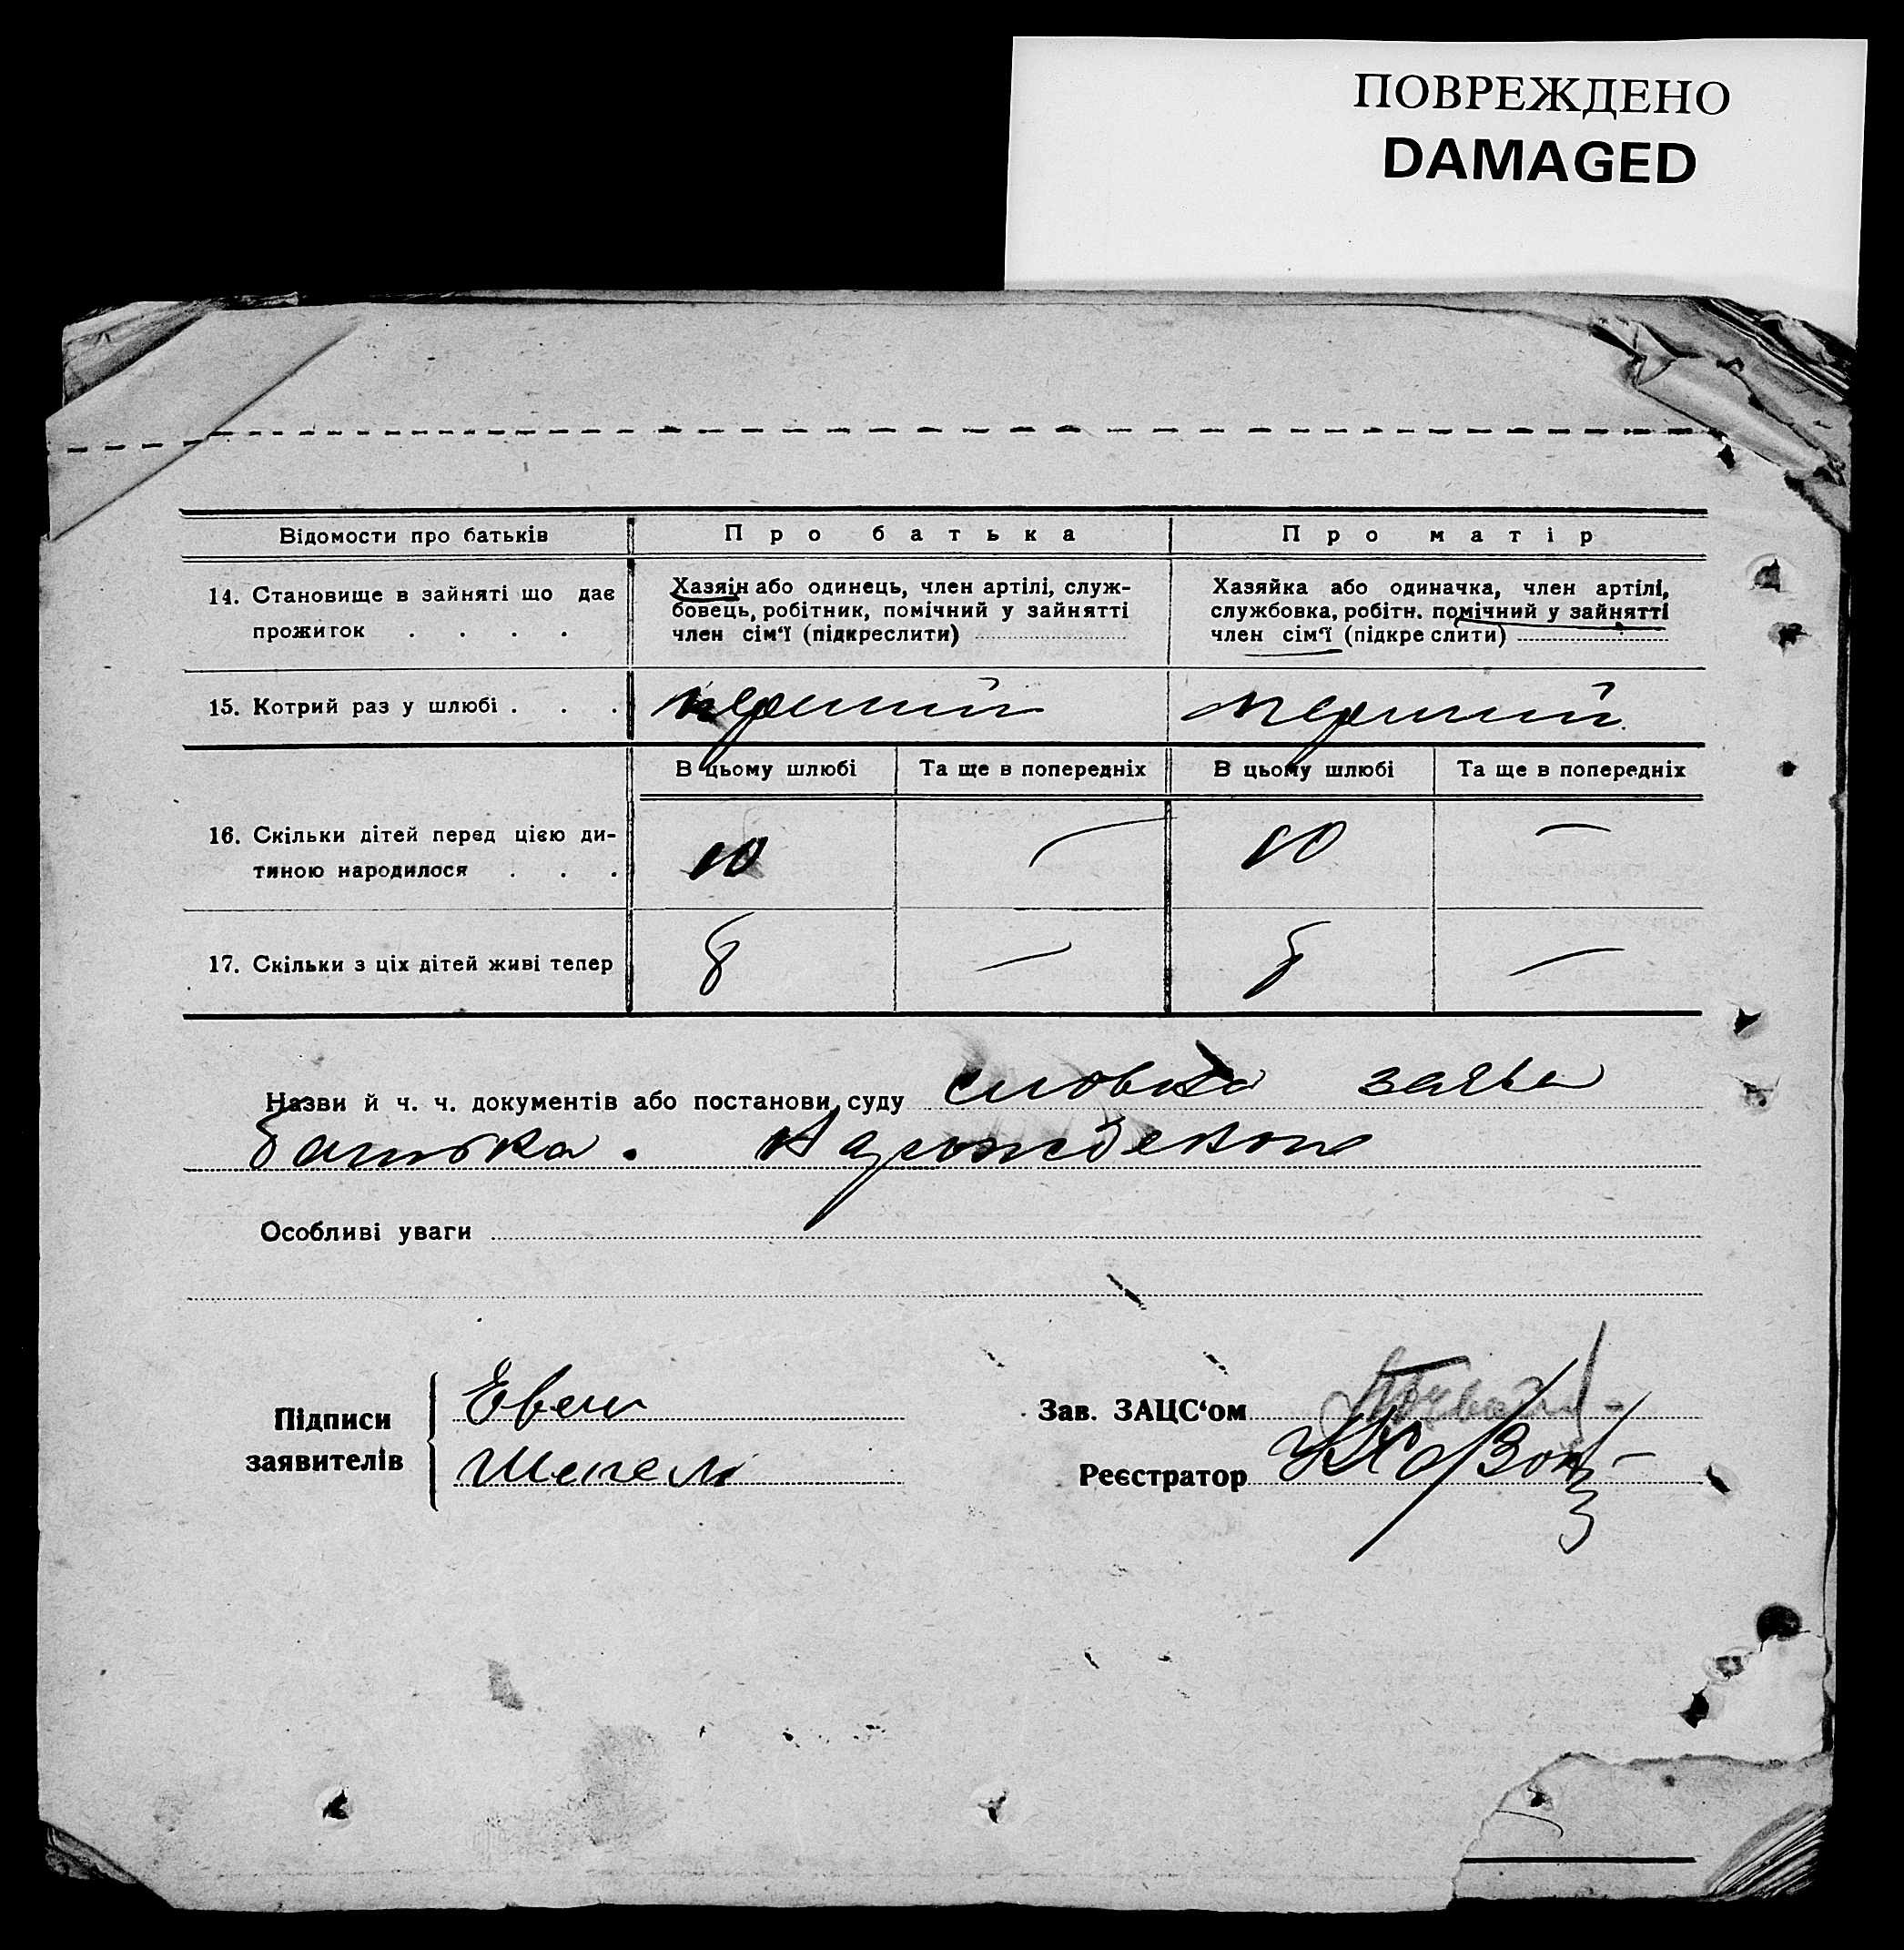 ПОВРЕЖДЕНО
DAMAGED
Відомости про батьків
Про батька
Про матір
14. Становище в зайняті що дає
прожиток . . . .
Хазяін або одинець, член артілі, служ-
бовець, робітник, помічний у зайнятті
член сім'ї (підкреслити)
Хазяйка або одиначка, член артілі,
службовка, робітн. помічний у зайнятті
член сім'ї (підкре слити)
15. Котрий раз у шлюбі . . .
перший
перший
В цьому шлюбі
Та ще в попередніх
В цьому шлюбі
Та ще в попередніх
16. Скільки дітей перед цією ди-
тиною народилося . . .
10
—
10
—
17. Скільки з ціх дітей живі тепер
8
—
8
—
Назви й ч. ч. документів або постанови суду словна заява
батька.
Особливі уваги
Підписи
заявителів
Шепель
Зав. ЗАЦС'ом
Реєстратор